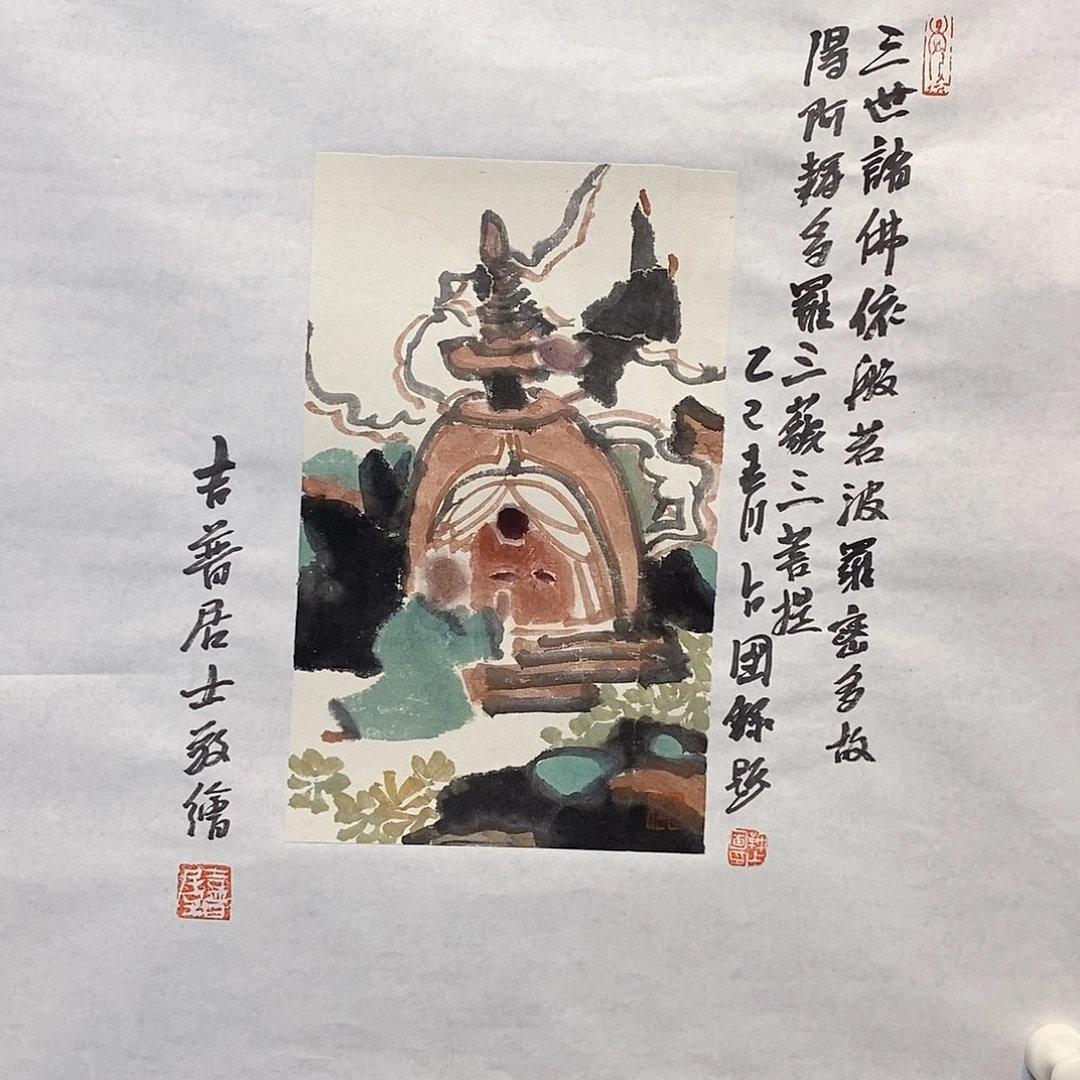 三世諸佛依般若波羅蜜多故
得阿耨多羅三藐三菩提
乙巳春月占國錄題
吉普居士敬繪